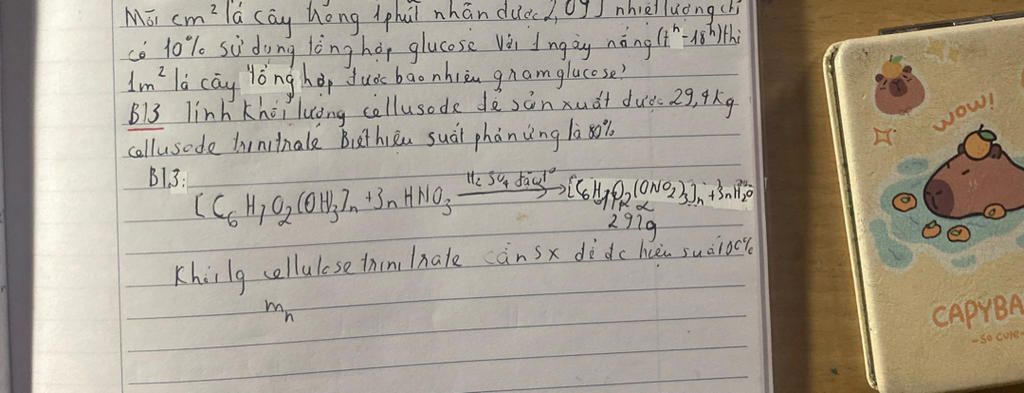 Mỗi cm² lá cây trong 1 phút nhận được 2,09 J nhiệt lượng chỉ
có 10% sử dụng tổng hợp glucose Với 1 ngày nắng (7h-18h) thì
1m² lá cây tổng hợp được bao nhiêu gram glucose?
B13 Tính khối lượng cellusode để sản xuất được 29,4kg
cellusode trinitrate Biết hiệu suất phản ứng là 80%
B13:
[C₆H₇O₂(OH)₃]ₙ + 3nHNO₃ H₂SO₄ đặc, t° → [C₆H₇O₂(ONO₂)₃]ₙ + 3nH₂O
297g
Khối lg cellulose trinitrate cần sx để đc hiệu suất 100%
mₙ
WOW!
CAPYBA
- SO CUTE